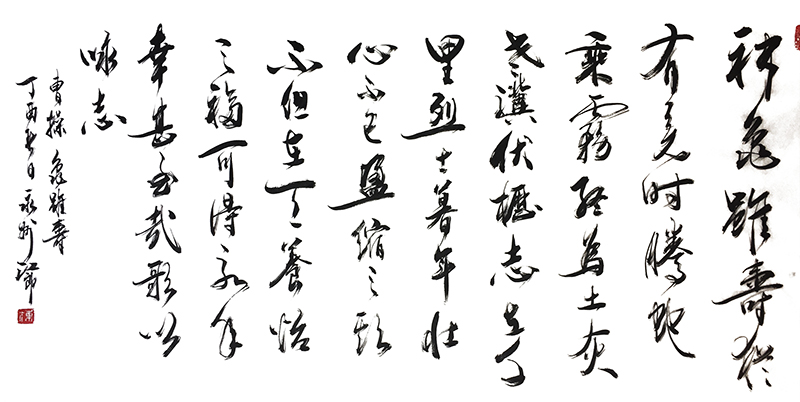 神龜雖壽猶
有竟时騰蛇
乘霧終為土灰
老驥伏櫪志在千
里烈士暮年壯
心不已盈縮之期
不但在天養怡
之福可得永年
幸甚至哉歌以
咏志
曹操 龜雖壽
丁酉春日